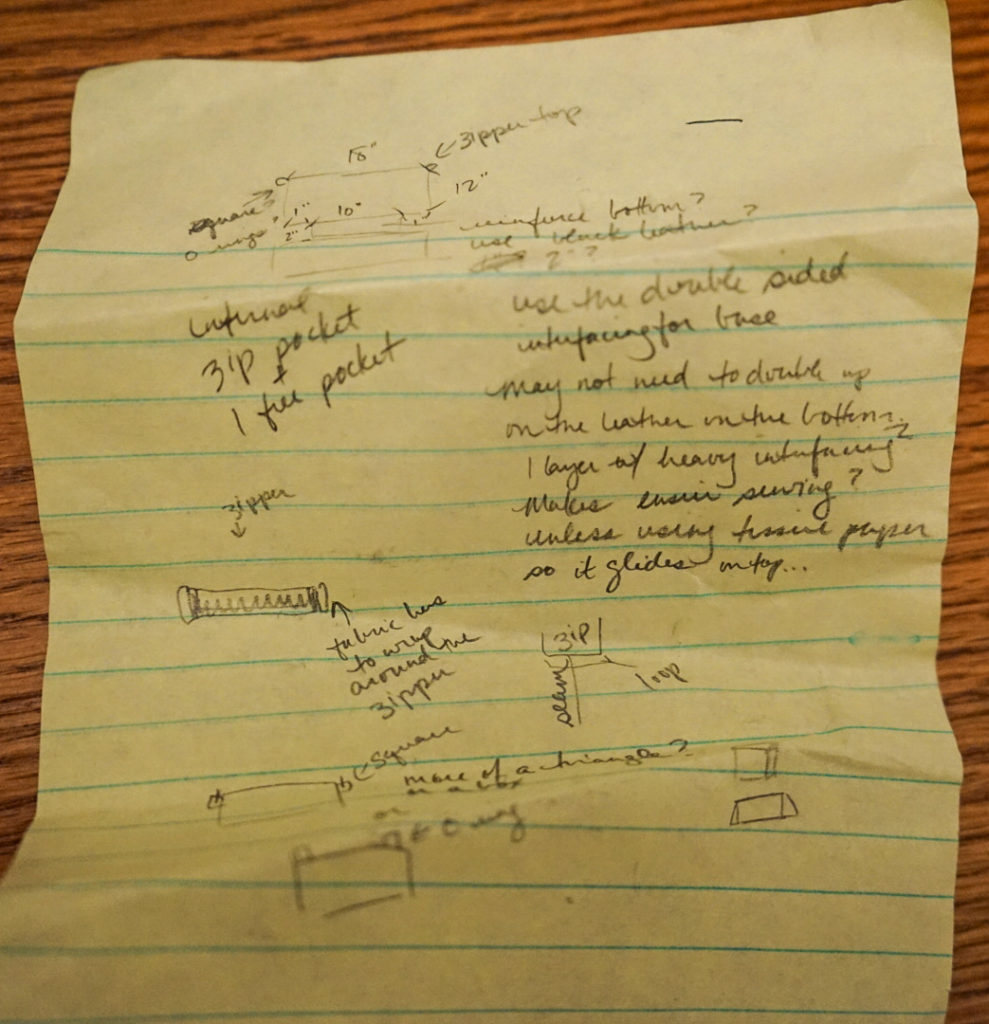 18"
zipper top
12"
square
o rings
1"
10"
1"
2"
reinforce bottom?
use black leather?
2"?
internal
zip pocket
+
1 free pocket
use the double sided
interfacing for base
may not need to double up
on the leather on the bottom.
1 layer w/ heavy interfacing?
Makes easier sewing?
unless using tissue paper
so it glides on top...
zipper
fabric has
to wrap
around the
zipper
zip
seam
loop
square
more of a triangle?
or a box
or
O ring